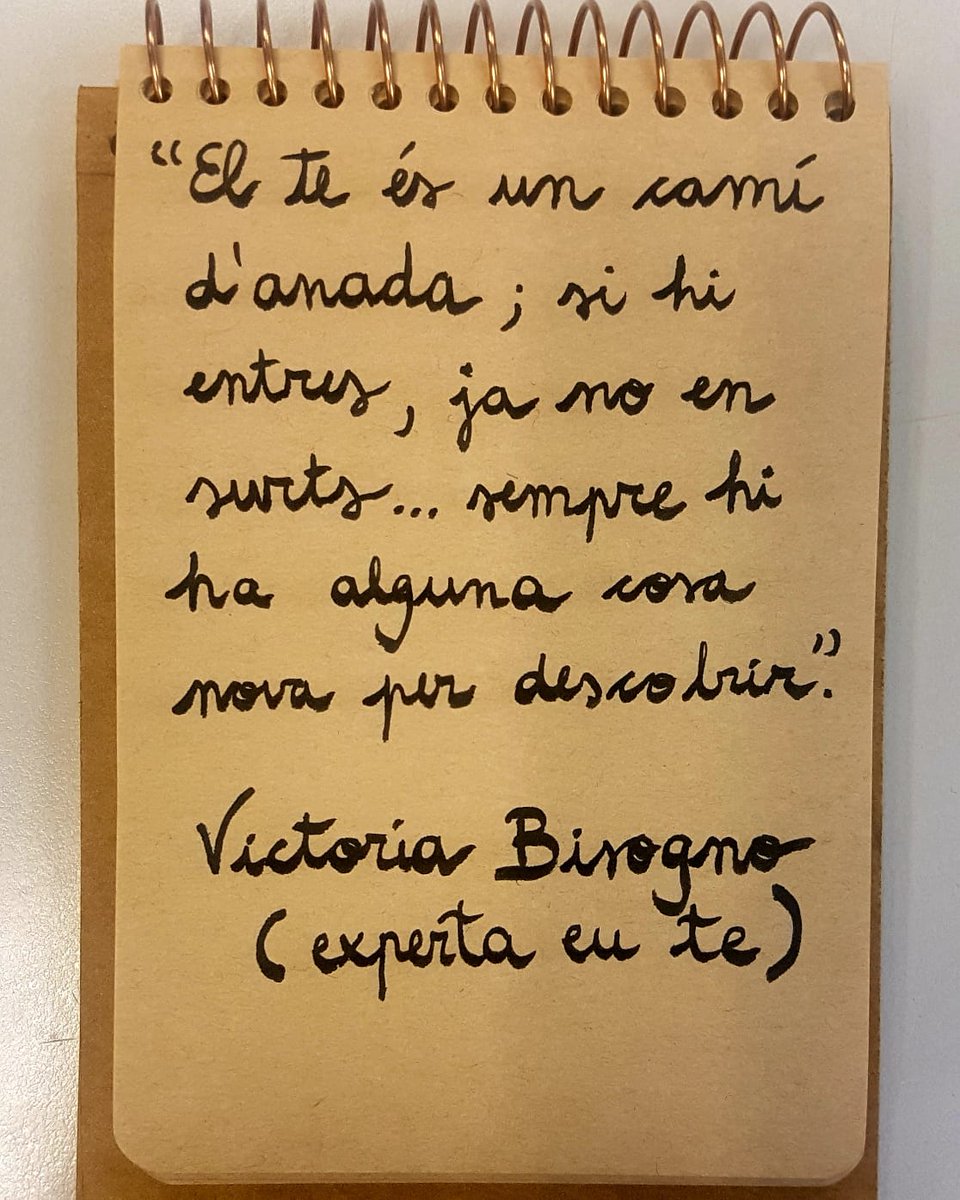 “El te és un camí
d'anada; si hi
entres, ja no en
surts... sempre hi
ha alguna cosa
nova per descobrir”.
Victoria Bisogno
(experta en te)